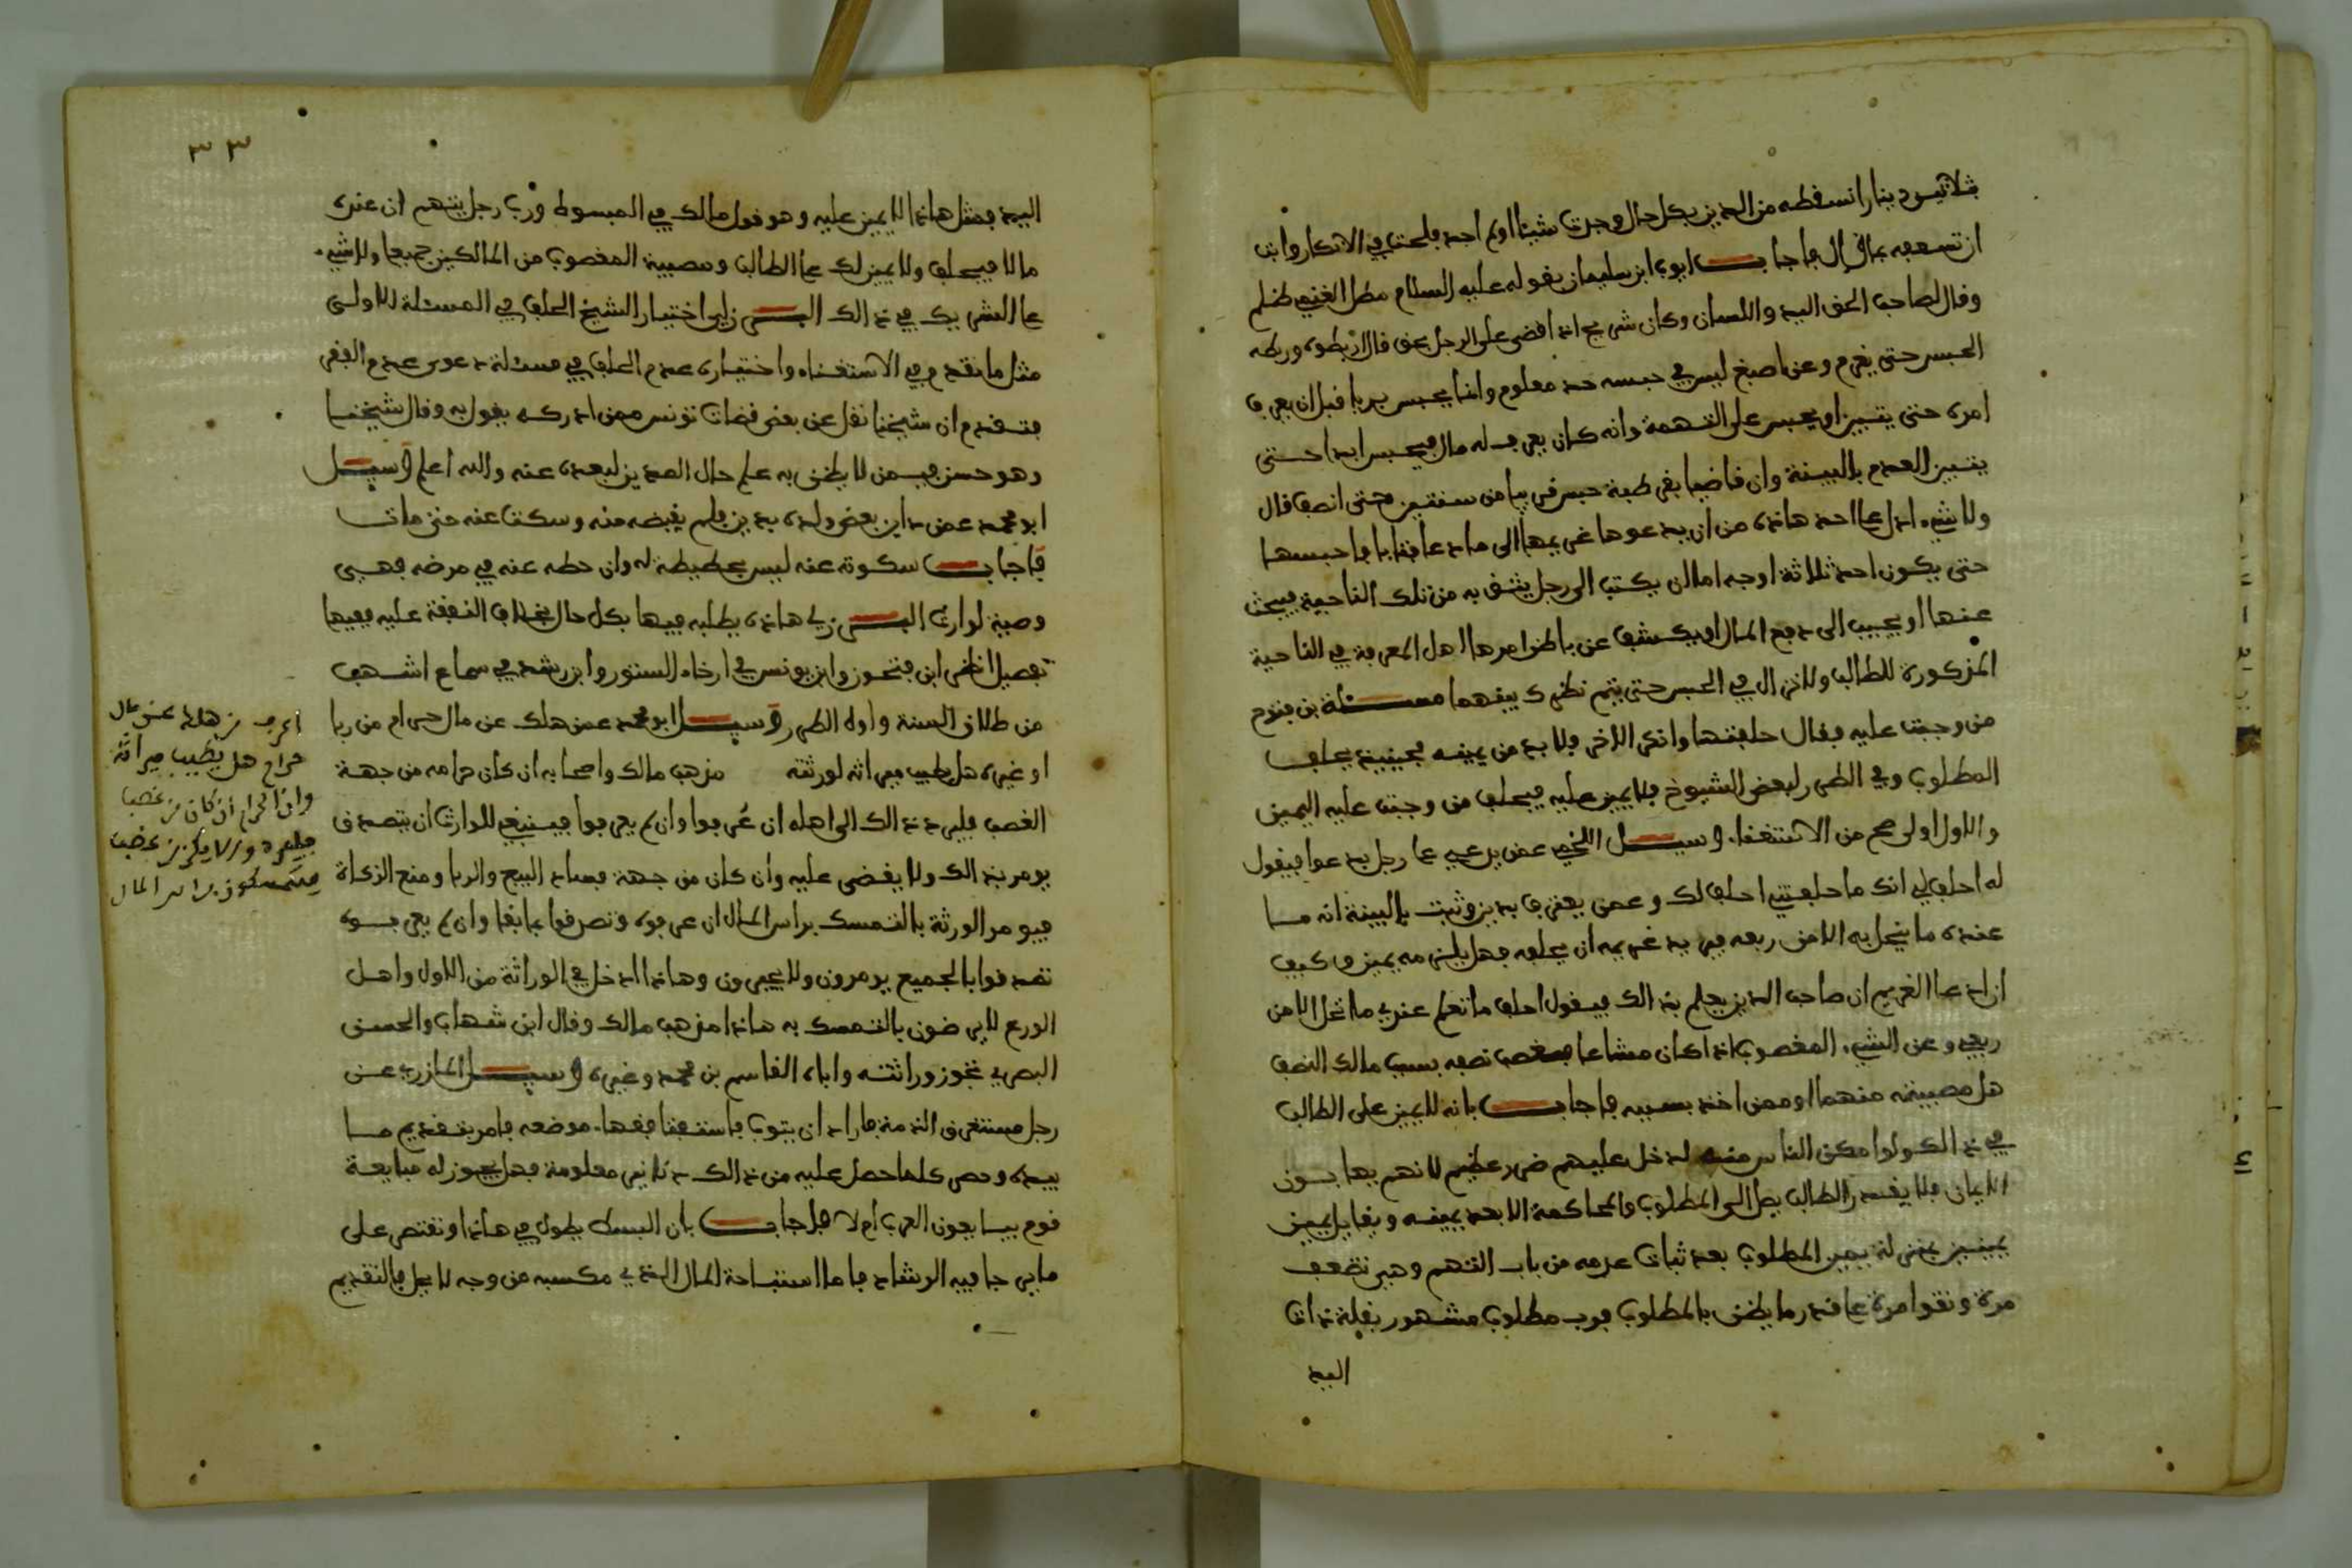 بثلاثين دينارا نسقطه من الدين بكل حال وجدت شيئا او لم اجد فلجت في الانكار وابت
ان تسعفه بمال قال فاجاب ابوب ابن سليمان بقوله عليه السلام مطل الغني ظلم
وقال لصاحب الحق اليد واللسان وكان شريح اذا قضى على الرجل بحق قال اربطوه وربطه
الحبس حتى يغرم وعن اصبغ ليس في حبسه حد معلوم وانما يحبس بريا قبل ان يعرف
امره حتى يتبين او يحبس على التهمة وانه كان يعرف له مال فيحبس ابدا حتى
يتبين العدم بالبينة وان قاضيا بقرطبة حبس قريبا من سنتين حتى انصف قال
ولا شيء ادل على احد هاذه من ان يدعوها غريمها الى ما دعا فتابا فاحبسها
حتى يكون احد ثلاثة اوجه اما ان يكتب الى رجل يثق به من تلك الناحية فيبحث
عنها او يجيب الى دفع المال او يكشف عن باطن امرها اهل المعرفة في الناحية
المذكورة للطالب ولا نزال في الحبس حتى يتم نظرك بينهما مسئلة بن فتوح
من وجبت عليه فقال حلفتها وانكر الاخر فلا بد من يمينه فحينيذ يحلف
المطلوب وفي الطرر لبعض الشيوخ فلا يمين عليه فيحلف من وجبت عليه اليمين
والاول اولى صح من الاستغناء. وسيل اللخمي عمن يدعي على رجل بدعوا فيقول
له احلف لي انك ما حلفتني احلف لك وعمن يعترف بدين وثبت بالبينة انه ما
عنده ما ينحل به الا من ربعه فيريد غريمه ان يحلفه فهل يلزمه يمين وكيف
ان ادعا الغريم ان صاحب الدين يعلم بذالك فيقول احلف ما تعلم عندي ما انحل الا من
ربعي وعن الشيء المغصوب اذا كان مشاعا فغصب نصفه بسبب مالك النصف
هل مصيبته منهما او ممن اخذ بسببه فاجاب بانه لا يمين على الطالب
في ذالك ولو امكن الناس منه لدخل عليهم ضرر عظيم لانهم يهابون
الايمان فلا يقدر الطالب يصل الى المطلوب والمحاكمة الا بعد يمينه ويقابل يمين
بيمينين بمنزلة يمين المطلوب بعد ثبات عدمه من باب التهم وهي تضعف
مرة وتقوا مرة على قدر ما يظن بالمطلوب فرب مطلوب مشهور بقلة ذات
اليد
٣٣
اليد فمثل هاذا لا يمين عليه وهو قول مالك في المبسوط ورب رجل يتهم ان عنده
مالا فيحلف ولا يمين لك على الطالب ومصيبة المغصوب من المالكين جميعا ولا شيء
على الشريك في ذالك البرزلي اختيار الشيخ الحلف في المسئلة الاولى
مثل ما تقدم في الاستغناء واختياره عدم الحلف في مسئلة دعوى عدم الفقر
فتقدم ان شيخنا نقل عن بعض قضات تونس ممن ادركه يقول به وقال شيخنا
وهو حسن فيمن لا يظن به علم حال المدين لبعده عنه والله اعلم وسيل
ابو محمد عمن داين بعض ولده بدين فلم يقبضه منه وسكت عنه حتى مات
فاجاب سكوته عنه ليس بحطيطة له وان حطه عنه في مرضه فهي
وصية لوارث البرزلي هاذه يطلبه فيها بكل حال بخلاف النفقة عليه ففيها
تفصيل انظر ابن فتحون وابن يونس في ارخاء الستور وابن رشد في سماع اشهب
من طلاق السنة واول الطرر وسيل ابو محمد عمن هلك عن مال حرام من ربا
او غيره هل يطيب ميراثه لورثته مذهب مالك واصحابه ان كان حرامه من جهة
الغصب فليرد ذالك الى اهله ان عرفوا وان لم يعرفوا فينبغي للوارث ان يتصدق
يومر بذالك ولا يقضى عليه وان كان من جهة فساد البيع والربا ومنع الزكاة
فيومر الورثة بالتمسك براس المال ان عرفوه وتصرفوا بما بقا وان لم يعرفوه
تصدقوا بالجميع يومرون ولا يجبرون وهاذا ادخل في الوراثة من الاول واهل
الورع لا يرضون بالتمسك به هاذا مذهب مالك وقال ابن شهاب والحسن
البصري تجوز وراثته واباه القاسم بن محمد وغيره وسيل المازري عن
رجل مستغرق الذمة فاراد ان يتوب فاستفتا فقها موضعه فامر بتقديم ما
بيده وحصر كلما حصل عليه من ذالك دنانير معلومة فهل يجوز له مبايعة
قوم يبايعون العرب ام لا فاجاب بان البسط يطول في هاذا ونقتصر على
ما يرجا فيه الرشاد فاما استباحة المال الذي مكسبه من وجه لا يحل فالتقديم
اعرف من هلك عن مال
حرام هل يطيب ميراثه
وان الحرام ان كان من غصب